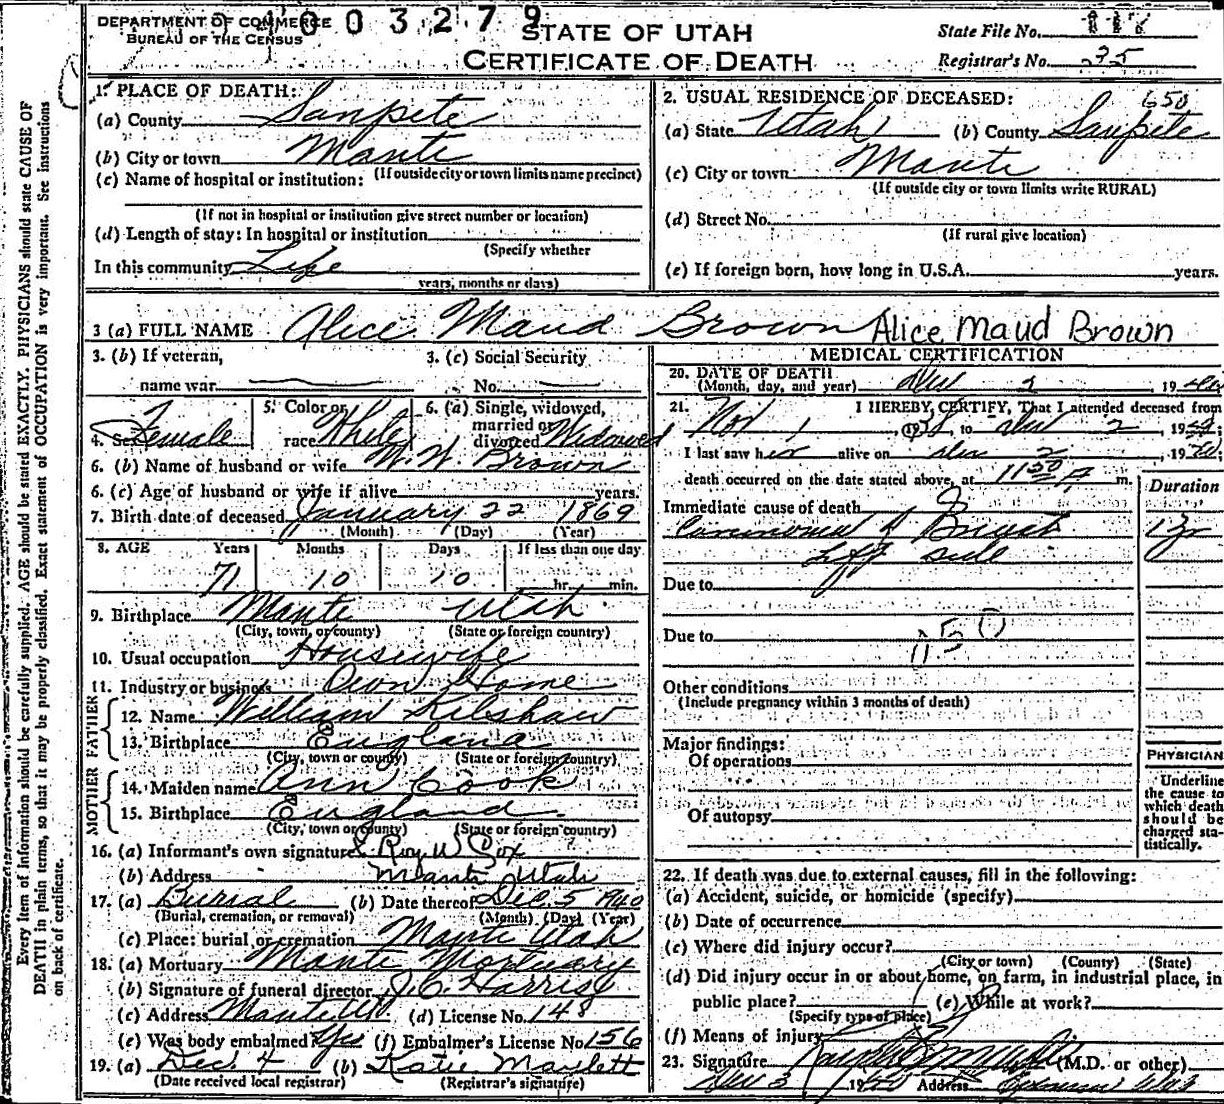 DEPARTMENT OF COMMERCE
BUREAU OF THE CENSUS
0 0 3 2 7 9
STATE OF UTAH
CERTIFICATE OF DEATH
State File No.
Registrar's No.
Every item of Information should be carefully supplied. AGE should be stated EXACTLY. PHYSICIANS should state CAUSE OF
DEATH in plain terms, so that it may be properly classified. Exact statement of OCCUPATION is very important. See instructions
on back of certificate.
1. PLACE OF DEATH:
(a) County Sanpete
(b) City or town Manti
(If outside city or town limits name precinct)
(c) Name of hospital or institution:
(If not in hospital or institution give street number or location)
(d) Length of stay: In hospital or institution
(Specify whether
In this community Life
years, months or days)
2. USUAL RESIDENCE OF DECEASED: 650
(a) State Utah (b) County Sanpete
(c) City or town Manti
(If outside city or town limits write RURAL)
(d) Street No.
(If rural give location)
(e) If foreign born, how long in U.S.A. years.
3 (a) FULL NAME Alice Maud Brown Alice Maud Brown
3. (b) If veteran,
name war
3. (c) Social Security
No.
4. Sex Female
5. Color or
race White
6. (a) Single, widowed,
married or
divorced Widowed
6. (b) Name of husband or wife W. W. Brown
6. (c) Age of husband or wife if alive years.
7. Birth date of deceased January 22 1869
(Month) (Day) (Year)
8. AGE Years Months Days If less than one day
71 10 10 hr. min.
9. Birthplace Manti Utah
(City, town, or county) (State or foreign country)
10. Usual occupation Housewife
11. Industry or business Own Home
FATHER
12. Name William Kilshaw
13. Birthplace England
(City, town or county) (State or foreign country)
MOTHER
14. Maiden name Ann Cook
15. Birthplace England
(City, town or county) (State or foreign country)
16. (a) Informant's own signature Roy W Cox
(b) Address Manti Utah
17. (a) Burial (b) Date thereof Dec. 5 1940
(Burial, cremation, or removal) (Month) (Day) (Year)
(c) Place: burial or cremation Manti Utah
18. (a) Mortuary Manti Mortuary
(b) Signature of funeral director J. C. Harris
(c) Address Manti Ut (d) License No. 148
(e) Was body embalmed Yes (f) Embalmer's License No. 156
19. (a) Dec. 4 (b) Katie Marlett
(Date received local registrar) (Registrar's signature)
MEDICAL CERTIFICATION
20. DATE OF DEATH
(Month, day, and year) Dec 2 1940
21. I HEREBY CERTIFY, That I attended deceased from
Nov 1, 19 to Dec 2, 19
I last saw her alive on Dec 2, 1940;
death occurred on the date stated above, at 11 50 m.
Duration
Immediate cause of death
Carcinoma of Breast
Left side
Due to
Due to
050
Other conditions
(Include pregnancy within 3 months of death)
Major findings:
Of operations
Of autopsy
PHYSICIAN
Underline
the cause to
which death
should be
charged sta-
tistically.
22. If death was due to external causes, fill in the following:
(a) Accident, suicide, or homicide (specify)
(b) Date of occurrence
(c) Where did injury occur?
(City or town) (County) (State)
(d) Did injury occur in or about home, on farm, in industrial place, in
public place? (e) While at work?
(Specify type of place)
(f) Means of injury
23. Signature (M.D. or other)
Dec 3 1940 Address Utah